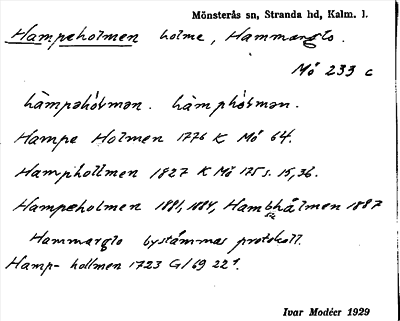 Mönsterås sn, Stranda hd, Kalm. l.
Hampeholmen holme, Hammarglo.
Mö 233 c
hàmpəhólmən. hàmphólmən.
Hampe Holmen 1776 K Mö 64.
Hamphollmen 1827 K Mö 175 s. 15, 36.
Hampeholmen 1881, 1884, Hambhålmen 1887
Hammarglo bystämmas protokoll.
Hamp-hollmen 1723 G/69 22¹.
Ivar Modéer 1929